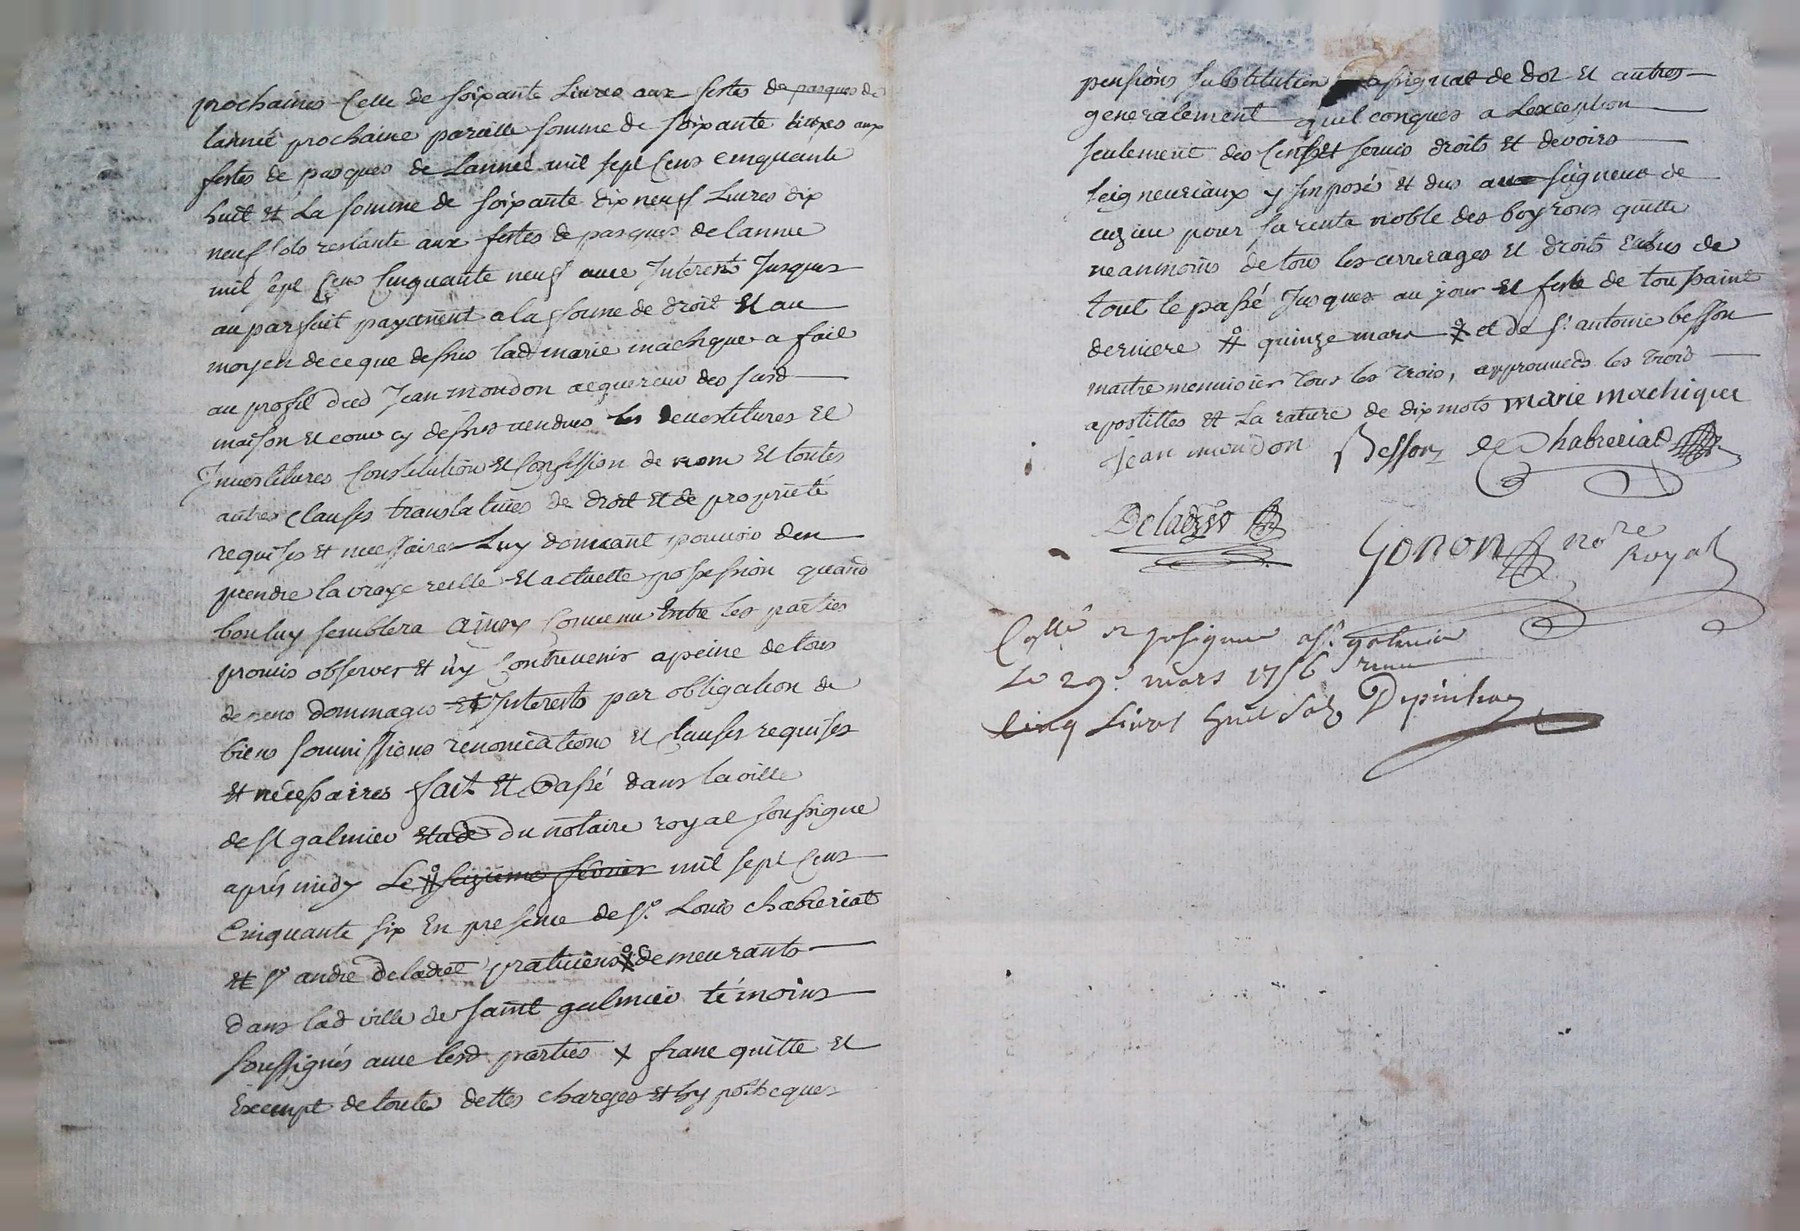 prochaines Celle de soixante Livres aux festes de pasques de
lannée prochaine pareille somme de soixante livres aux
festes de pasques de Lannée mil sept Cens cinquante
huit et La somme de soixante dix neuf Livres dix
neuf sols restante aux festes de pasques de lannée
mil sept Cens Cinquante neuf avec Interests Jusques
au parfait payement a la forme de droit et au
moyen de ce que dessus lad marie machique a fait
au profit dud Jean mondon acquereur des susd
maison et cour cy dessus vendues les devestitures et
Investitures Constitution et Confession de nom et toutes
autres clauses translatives de droit et de proprieté
requises et necessaires Luy donnant pouvoir den
prendre la vraye reelle et actuelle possession quand
bon luy semblera ainsy Convenu Entre les parties
promis observer et ny Contrevenir a peine de tous
depens dommages et Interests par obligation de
biens soumissions renonciations et clauses requises
et nécessaires fait et Passé dans la ville
de st galmier du notaire royal soussigne
aprés midy Le seizieme fevrier mil sept Cens
Cinquante six En presence de sr. Louis chabreriat
et sr andré deladret praticiens demeurants
dans lad ville de saint galmier témoins
soussignés avec lesd parties x franc quitte et
Exempt de toutes dettes charges et hypotheques
pensions substitution assignat de dot et autres
generalement quelconques a Lexception
seulement des Cens et servis droits et devoirs
seigneuriaux y Imposés et dus au seigneur de
cuzieu pour sa rente noble des boyrons quitte
neanmoins de tous les arrerages et droits Echus de
tout le passé Jusques au jour et feste de toussaint
derniere # quinze mars x et de sr antoine besson
maitre menuisier tous les trois, approuvées les trois
apostilles et La rature de dix mots marie machique
jean mondon Besson Chabreriat
Deladret
Gonon no.re Royal
Collé et st galmier
Le 29e mars 1756 reçu
cinq Livres huit sols Depinhac